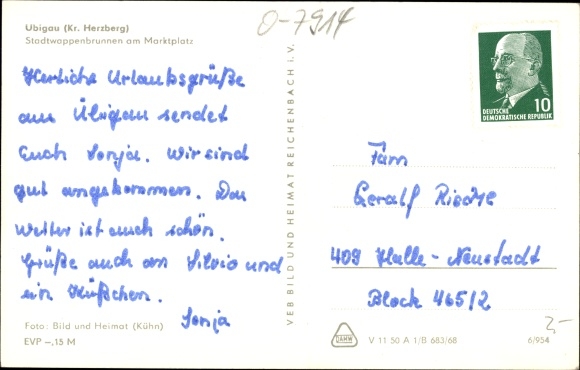 Übigau (Kr. Herzberg)
Stadtwappenbrunnen am Marktplatz
O-7914
Herzliche Urlaubsgrüße
aus Übigau sendet
Euch Sonja. Wir sind
gut angekommen. Das
Wetter ist auch schön.
Grüße auch an Silvio und
ein Küßchen.
Sonja
Foto: Bild und Heimat (Kühn)
EVP –,15 M
VEB BILD UND HEIMAT REICHENBACH i. V.
DEUTSCHE
DEMOKRATISCHE REPUBLIK
10
Fam
Geralf
409 Halle-Neustadt
Block 465/2
V 11 50 A 1/B 683/68
6/954
2,-